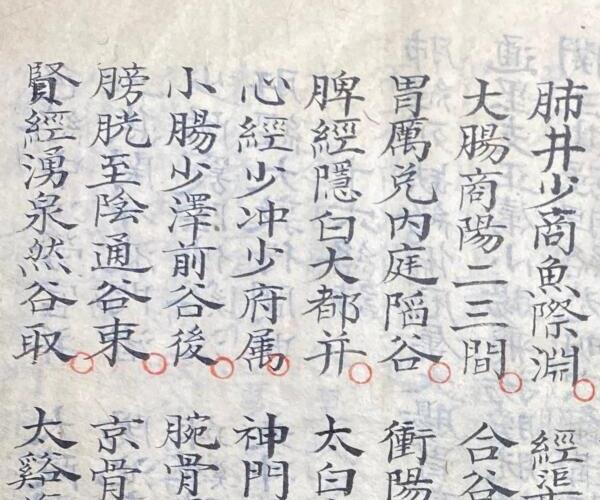 肺井少商魚際淵 經
大腸商陽二三間 合谷
胃厲兌内庭陷谷 衝陽
脾經隱白大都并 太白
心經少冲少府属 神門
小腸少澤前谷後 腕骨
膀胱至陰通谷束 京骨
賢經湧泉然谷取 太谿